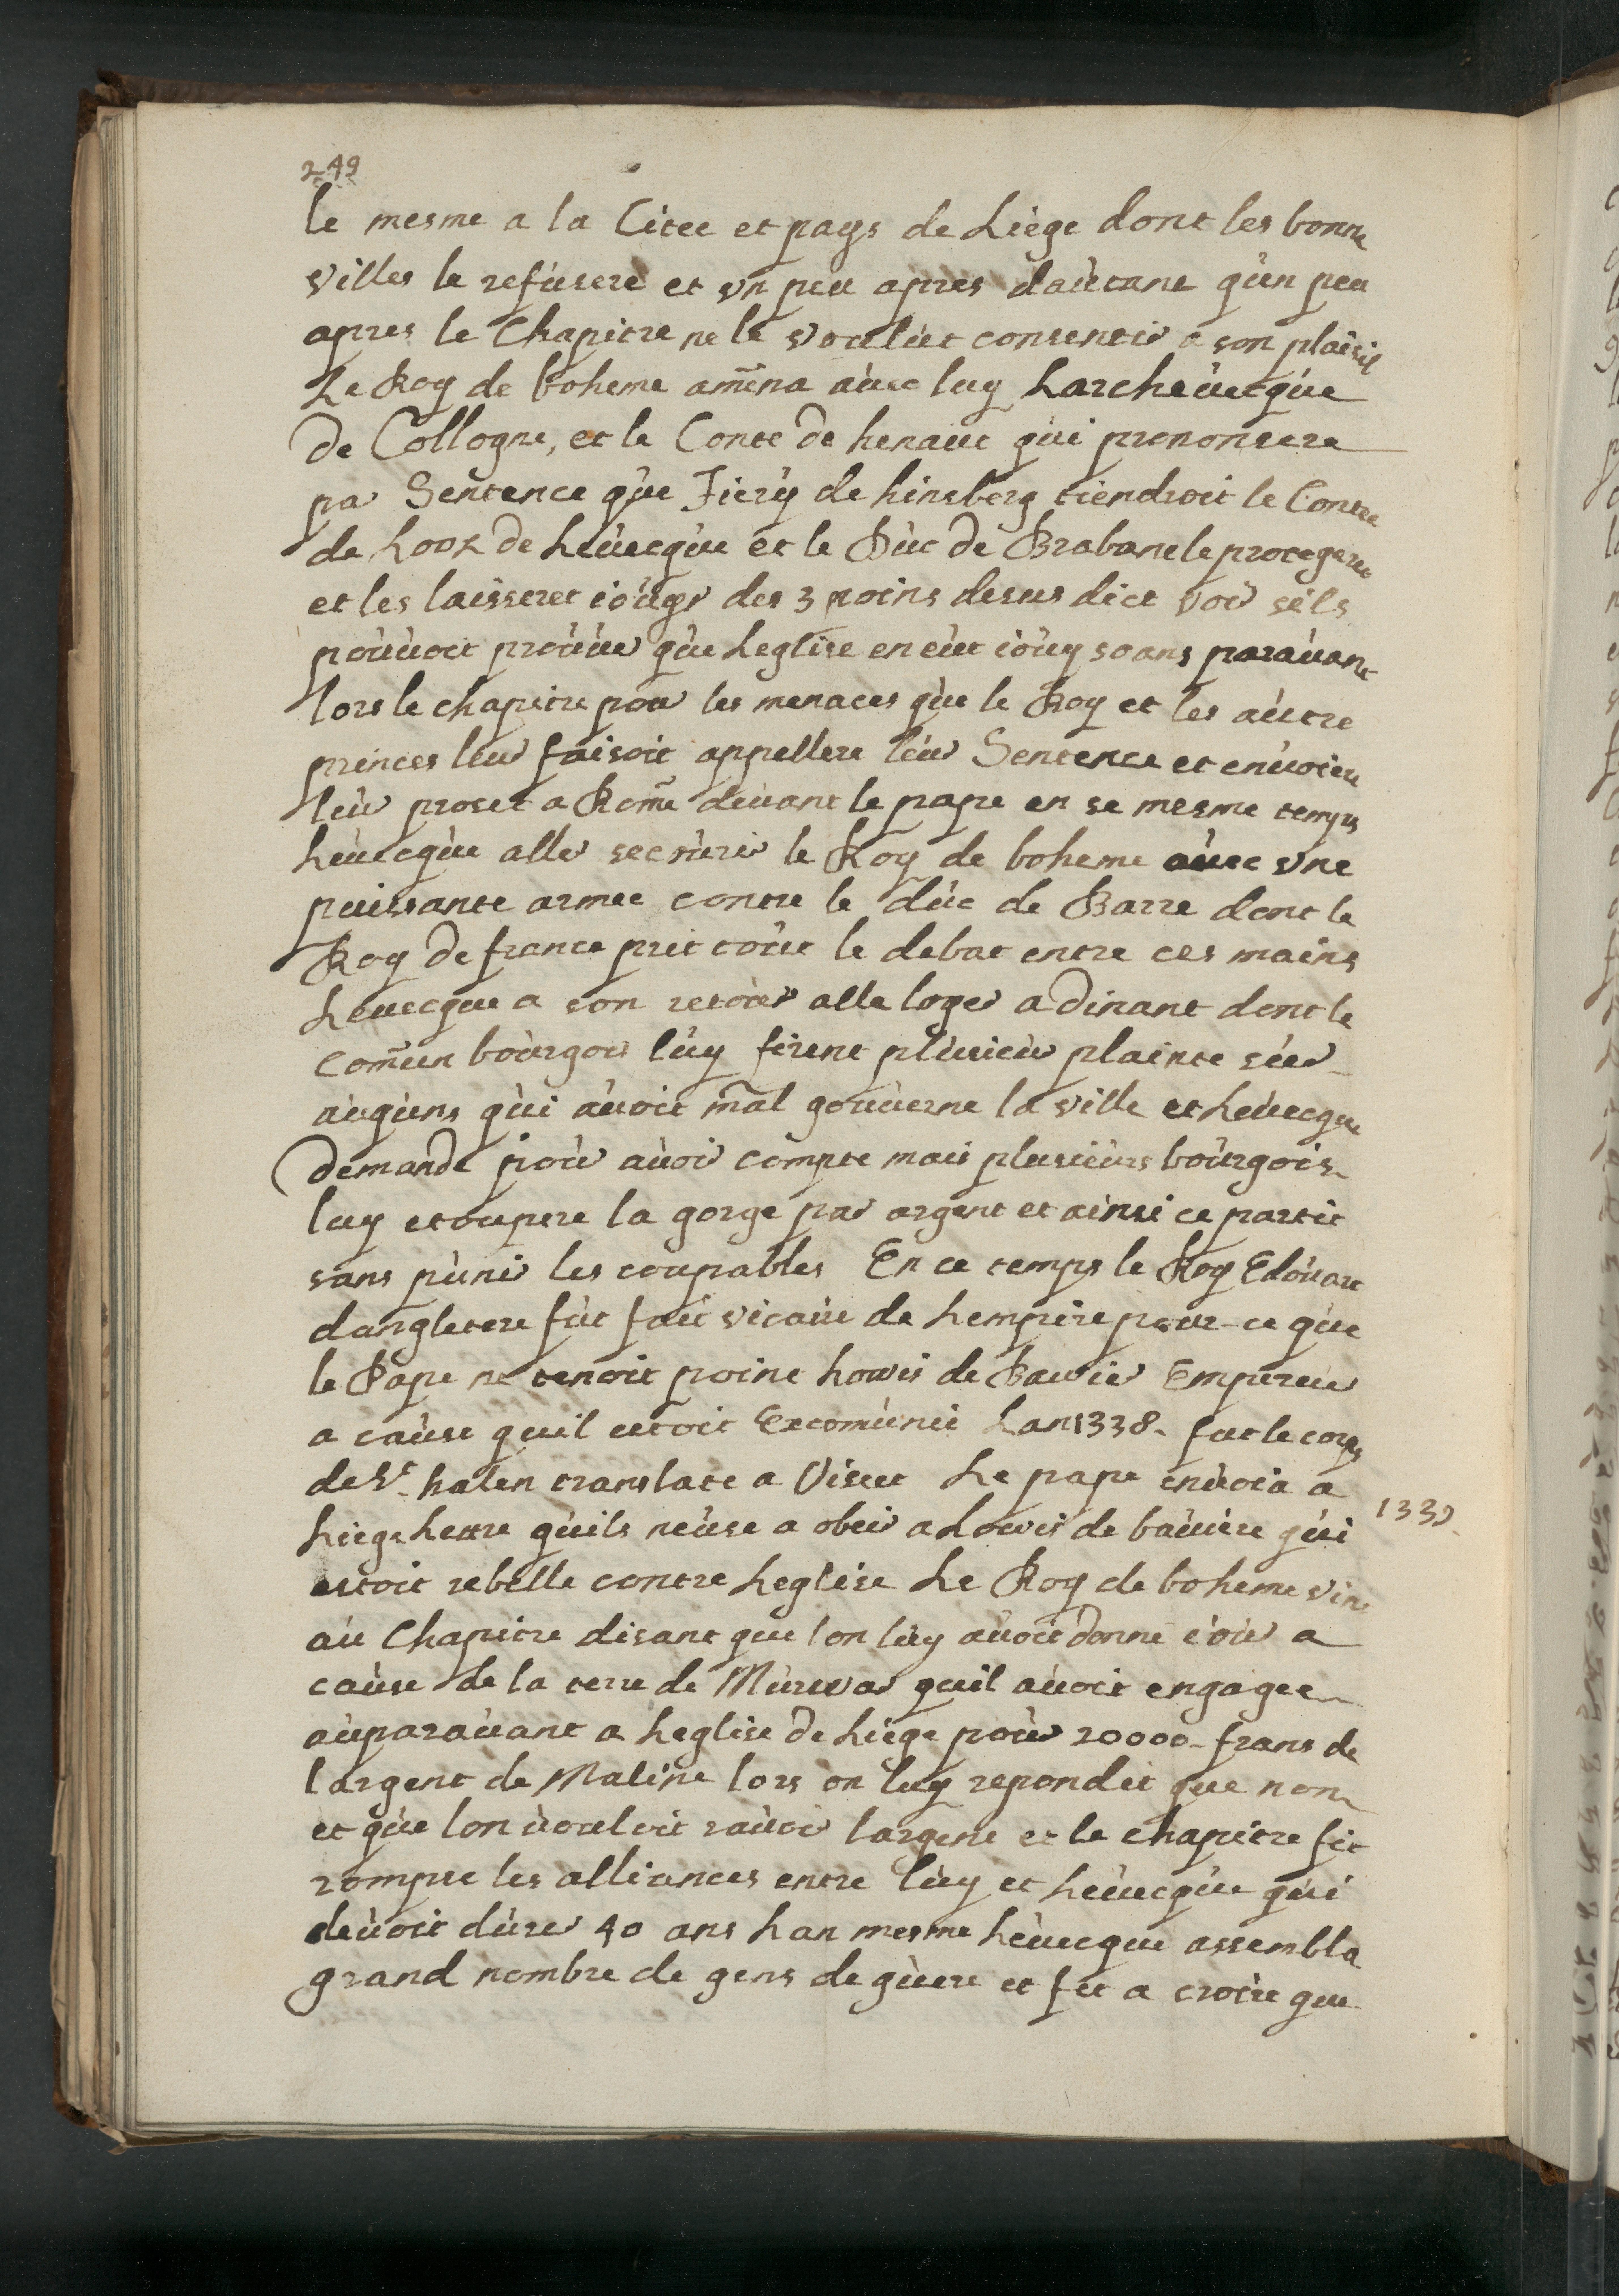 249
le mesme a la Citee et pays de Liège dont les bonne
villes le refusere et vn peu apres dautant qùn peu
apres le Chapitre ne le voulùt consentir a son plaisir
Le Roy de boheme amena aùec luy Larcheùecqùe
de Collogne, et le Conte de henaut qùi prononsere
par Sentence qùe Tiery de hinsberg tiendroit le Conte
de Looz de Leùecqùe et le Dùc de Brabant le protegeret
et les laisseret ioùyr des 3 poins desus dict voir sèls
poùvoit proùùer qùe Leglise en eùt ioùy 50 ans paraùant
lors le chapitre pour les menaces qùe le Roy et les aùtre
princes leur faisoit appellere leùr Sentence et enùoier
leùr proset a Rome deùant le pape en se mesme temps
Leùecqùe aller secoùrir le Roy de boheme aùec vne
puissante armee contre le dùc de Barre dont le
Roy de france prit toùt le debat entre ces mains
Leuecque a son retoùr alle loger a dinant dont le
comùn boùrgois lùy firent plùsieùr plainte sùr
aùqùns qùi aùoit mal goùùerne la ville et Leùecque
demande poùr aùoir compte mais plusieùrs boùrgois
luy etoupere la gorge par argent et ainsi ce partit
sans pùnir les coupables En ce temps le Roy Edoùart
dangletere fùt fait vicaire de Lempire pour ce qùe
le Pape ne tenoit point Lowis de Bavier Empereùr
a caùse quil estoit Excomùnié Lan 1338 fut le corps
de St. halen translate a Viset Le pape enùoia a
Liege Lettre qùils neùse a obeir a Lowis de baùiere qùi 1339
estoit rebelle contre Leglise Le Roy de boheme vint
aù Chapitre disant que lon lùy aùoit donné ioùr a
caùse de la terre de Mùrwar quil aùoit engagee
aùparaùant a Leglise de Liège poùr 20000 frans de
largent de Maline lors on luy repondit que non
et qùe lon ùouloit raùoir largent et le chapitre fit
rompre les alliances entre lùy et Leùecqùe qùi
deùoit dùrer 40 ans Lan mesme Leùecque assembla
grand nombre de gens de gùere et fit a croire que